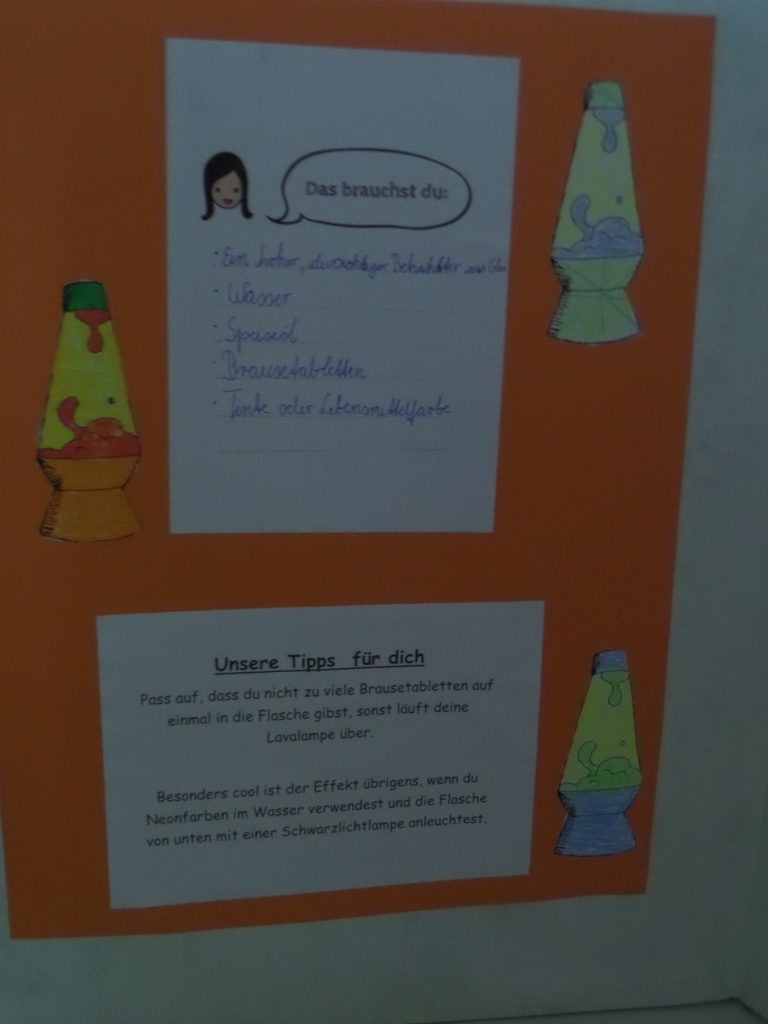 Das brauchst du:
· Ein hoher, durchsichtiger Behälter aus Glas
· Wasser
· Speiseöl
· Brausetabletten
· Tinte oder Lebensmittelfarbe
Unsere Tipps für dich
Pass auf, dass du nicht zu viele Brausetabletten auf
einmal in die Flasche gibst, sonst läuft deine
Lavalampe über.
Besonders cool ist der Effekt übrigens, wenn du
Neonfarben im Wasser verwendest und die Flasche
von unten mit einer Schwarzlichtlampe anleuchtest.